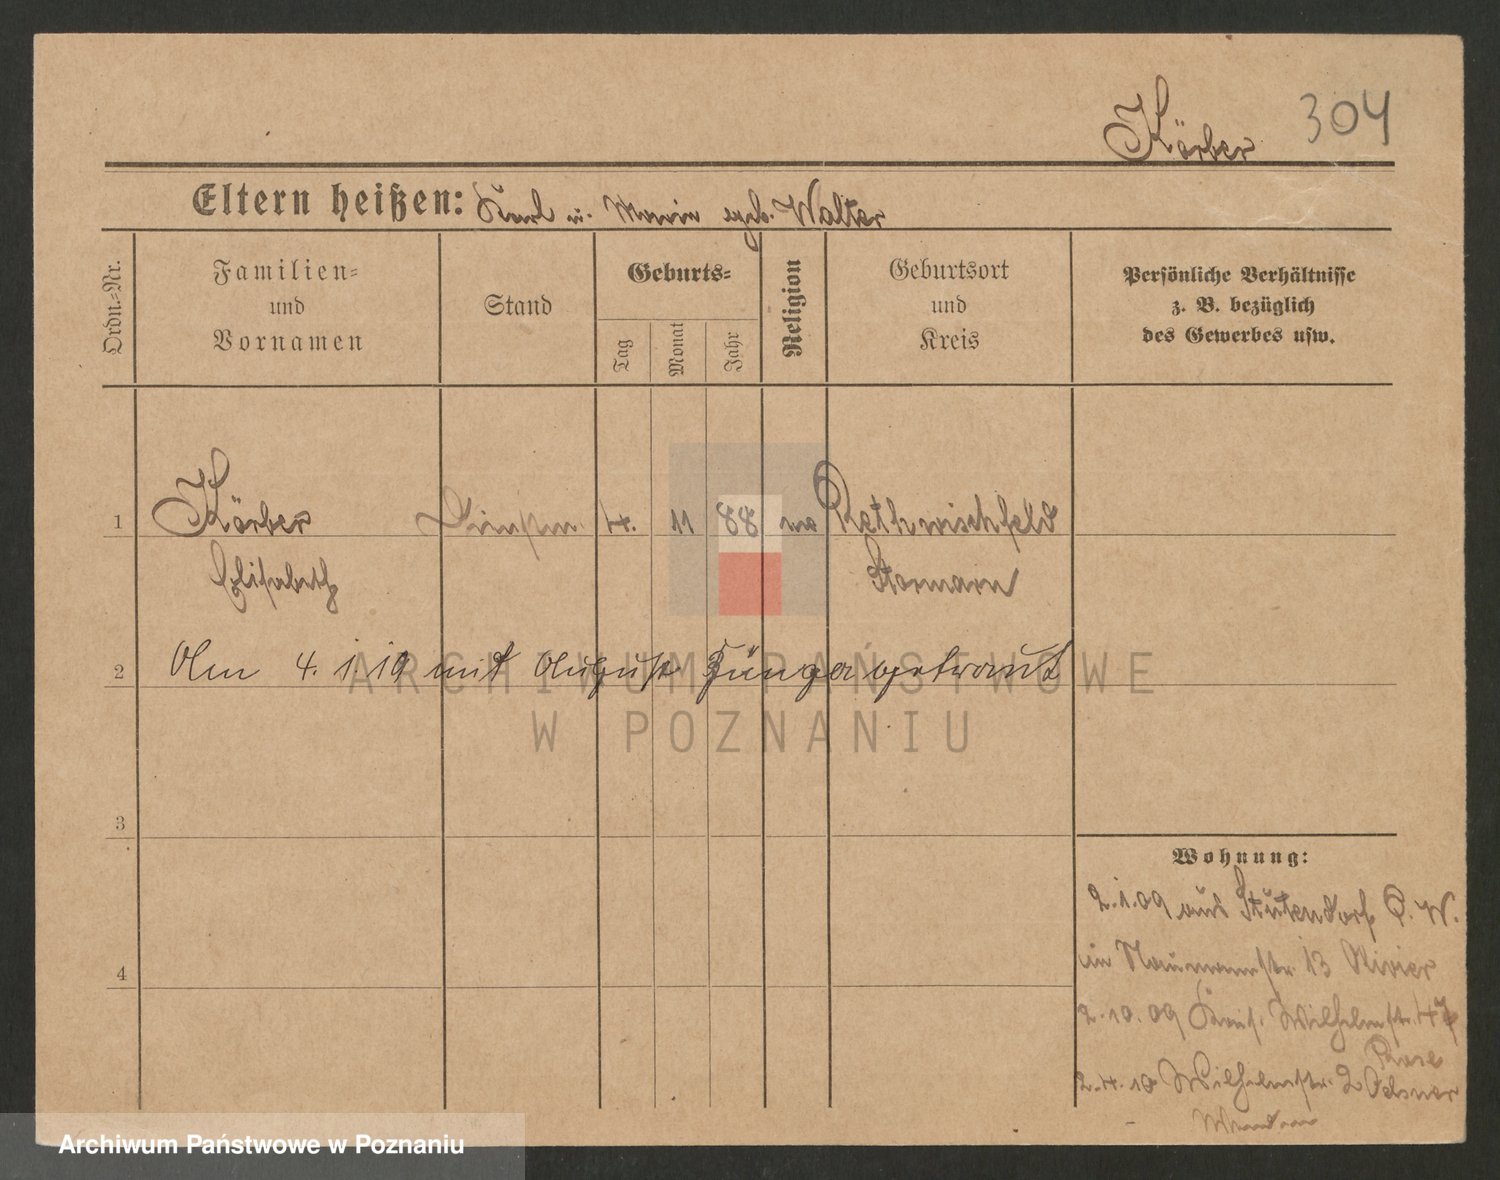 Körber 304
Eltern heißen: Karl u. Marie geb. Walter
Ordn.=Nr.
Familien=
und
Vornamen
Stand
Geburts=
Tag
Monat
Jahr
Religion
Geburtsort
und
Kreis
Persönliche Verhältnisse
z. B. bezüglich
des Gewerbes usw.
1 Körber 4. 11 88 Rethwischfeld
Elisabeth Stormarn
2 Am 4. 1 19 mit August getraut
ARCHIWUM PAŃSTWOWE
W POZNANIU
3
Wohnung:
2.1.09 aus Stutendorf P. W.
in Naumannstr. 13
4
2.10.09 Wilhelmstr.
2.4.10 Wilhelmstr. 2
Archiwum Państwowe w Poznaniu